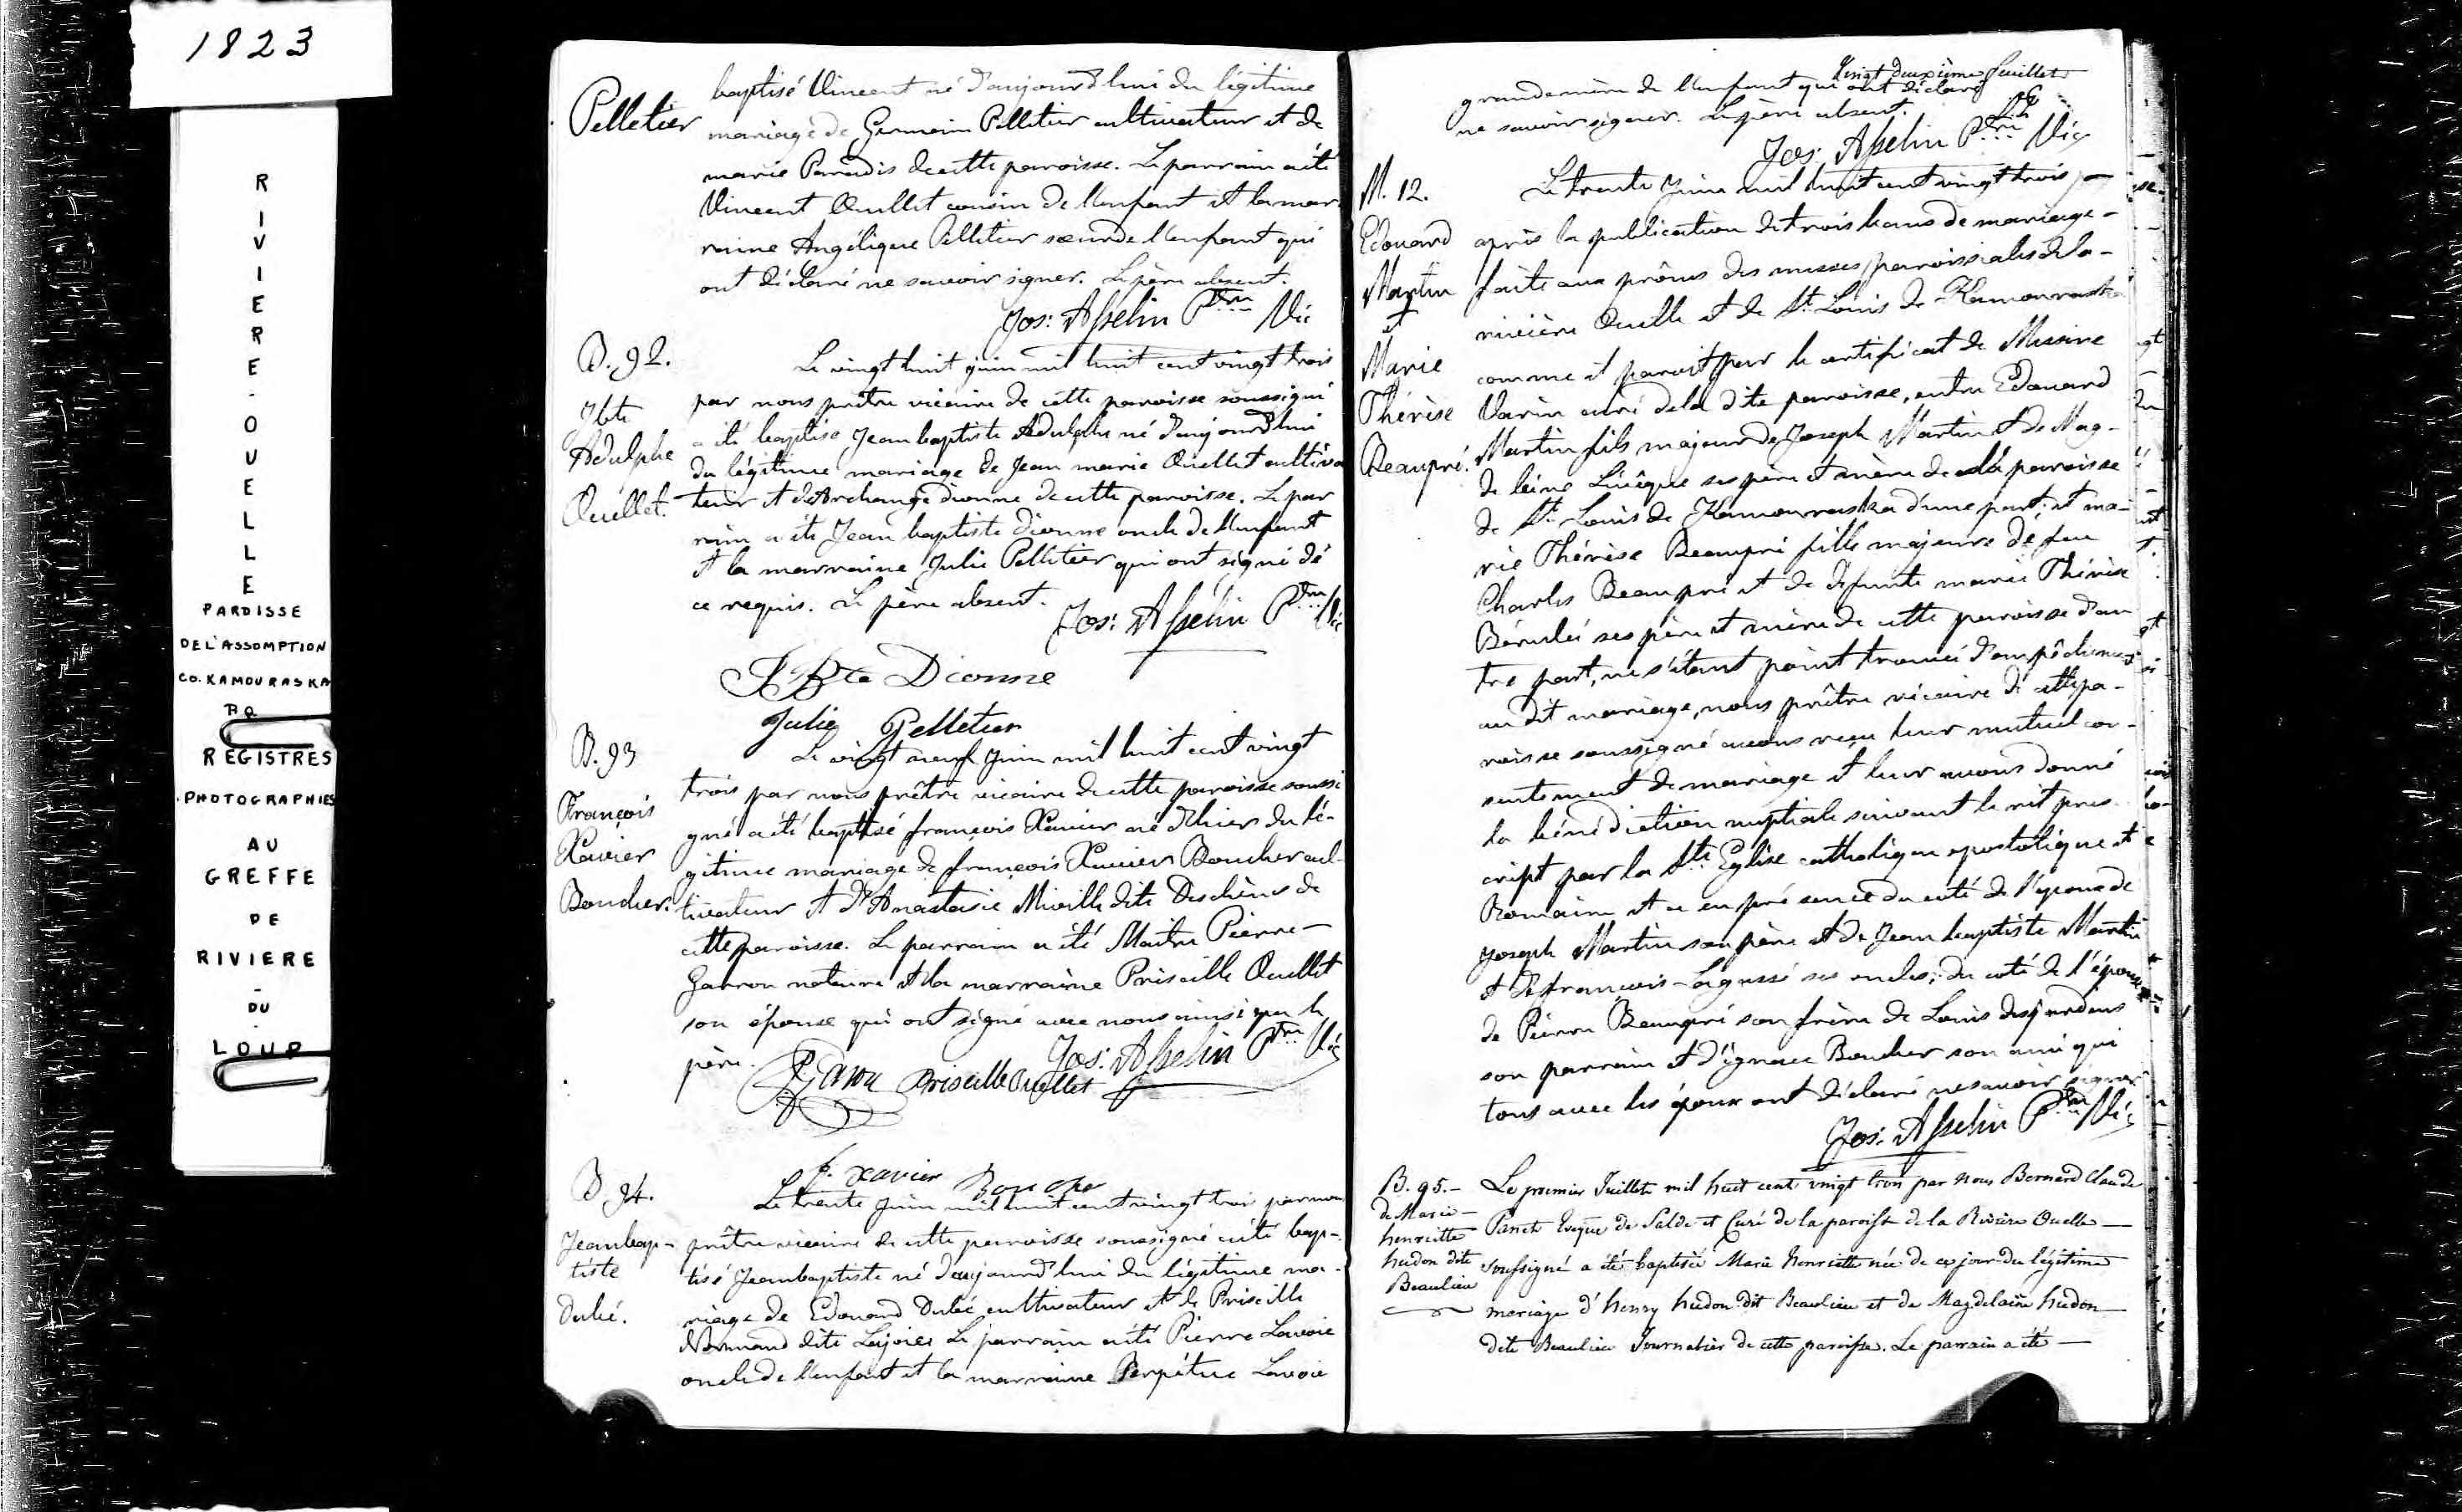 1823
RIVIERE-OUELLE
PAROISSE
DE L'ASSOMPTION
CO. KAMOURASKA
PQ
REGISTRES
PHOTOGRAPHIES
AU
GREFFE
DE
RIVIERE
-
DU
-
LOUP
Pelletier
baptisé Vincent né d'aujourd'hui du légitime
mariage de Germain Pelletier cultivateur et de
marie Paradis de cette paroisse. Le parrain a été
Vincent Ouellet cousin de l'enfant et la mar
raine Angélique Pelletier soeur de l'enfant qui
ont déclaré ne savoir signer. Le père absent.
Jos: Asselin Ptre Vic
B. 92.
Jbte
Adulphe
Ouellet.
Le vingt huit juin mil huit cent vingt trois
par nous prêtre vicaire de cette paroisse soussigné
a été baptisé Jean baptiste Adulphe né d'aujourd'hui
du légitime mariage de Jean marie Ouellet cultiva
teur et d'Archange dionne de cette paroisse. Le par
rain a été Jean baptiste Dionne oncle de l'enfant
et la marraine Julie Pelletier qui ont signé de
ce requis. Le père absent.
Jos: Asselin Ptre Vic
J Bte Dionne
Julie Pelletier
B. 93
François
Xavier
Boucher.
Le vingt neuf Juin mil huit cent vingt
trois par nous prêtre vicaire de cette paroisse soussi
gné a été baptisé françois Xavier né d'hier du lé-
gitime mariage de françois Xavier Boucher cul-
tivateur et d'Anastasie Miville dite Deschênes de
cette paroisse. Le parrain a été Maître Pierre
Garron notaire et la marraine Priscille Ouellet
son épouse qui ont signé avec nous ainsi que le
père.
Jos: Asselin Ptre Vic
P. Garon Priscille Ouellet
f. xavier Boucher
B 94.
Jean bap-
tiste
Dubé.
Le trente Juin mil huit cent vingt trois par nous
prêtre vicaire de cette paroisse soussigné a été bap-
tisé Jean baptiste né d'aujourd'hui du légitime ma-
riage de Edouard Dubé cultivateur et de Priscille
dite Lajoie Le parrain a été Pierre Lavoie
oncle de l'enfant et la marraine Perpétue Lavoie
Vingt deuxième feuillet
grandemère de l'enfant qui ont déclaré
ne savoir signer. Le père absent.
Jos: Asselin Ptre Vic
M. 12.
Edouard
Martin
et
Marie
Thérèse
Beaupré.
Le trente Juin mil huit cent vingt trois
après la publication de trois bans de mariage
faite aux prônes des messes paroissiales de la
rivière Ouelle et de St. Louis de Kamouraska
comme il paroit par le certificat de Messire
Varin curé de la dite paroisse, entre Edouard
Martin fils majeur de Joseph Martin et de Mag-
deleine Levêque ses père et mère de la paroisse
de St. Louis de Kamouraska d'une part; et ma-
rie Thérèse Beaupré fille majeure de feu
Charles Beaupré et de defunte marie Thérèse
Bérubé ses père et mère de cette paroisse d'au
tre part, ne s'étant point trouvé d'empêchement
au dit mariage, nous prêtre vicaire de cette pa-
roisse soussigné avons reçu leur mutuel con-
sentement de mariage et leur avons donné
la bénédiction nuptiale suivant le rit pres
cript par la Ste Eglise catholique apostolique et
Romaine et ce en présence du coté de l'époux de
Joseph Martin son père et de Jean baptiste Martin
et de françois Lagassé ses oncles; du coté de l'épouse
de Pierre Beaupré son frère de Louis desjardins
son parrain et d'ignace Boucher son ami qui
tous avec les époux ont déclaré ne savoir signer
Jos: Asselin Ptre Vic
B. 95.-
de Marie
henriette
hudon dite
Beaulieu
Le premier Juillet mil huit cent vingt trois par nous Bernard Claude
Panet Evêque de Salde et Curé de la paroisse de la Rivière Ouelle
soussigné a été baptisée Marie henriette née de ce jour du légitime
mariage d'henry hudon dit Beaulieu et de Magdelaine hudon
dite Beaulieu Journalier de cette paroisse. Le parrain a été